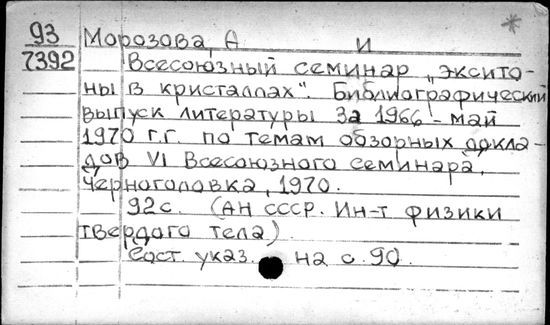 93 Морозова, А И
7392 Всесоюзный семинар „эксито-
ны в кристаллах". Библиографический
выпуск литературы за 1966 - май
1970 г.г. по темам обзорных докла-
дов VI Всесоюзного семинара,
Черноголовка, 1970.
92 с. (АН СССР. Ин-т физики
твердого тела)
Сост. указ. на с. 90.